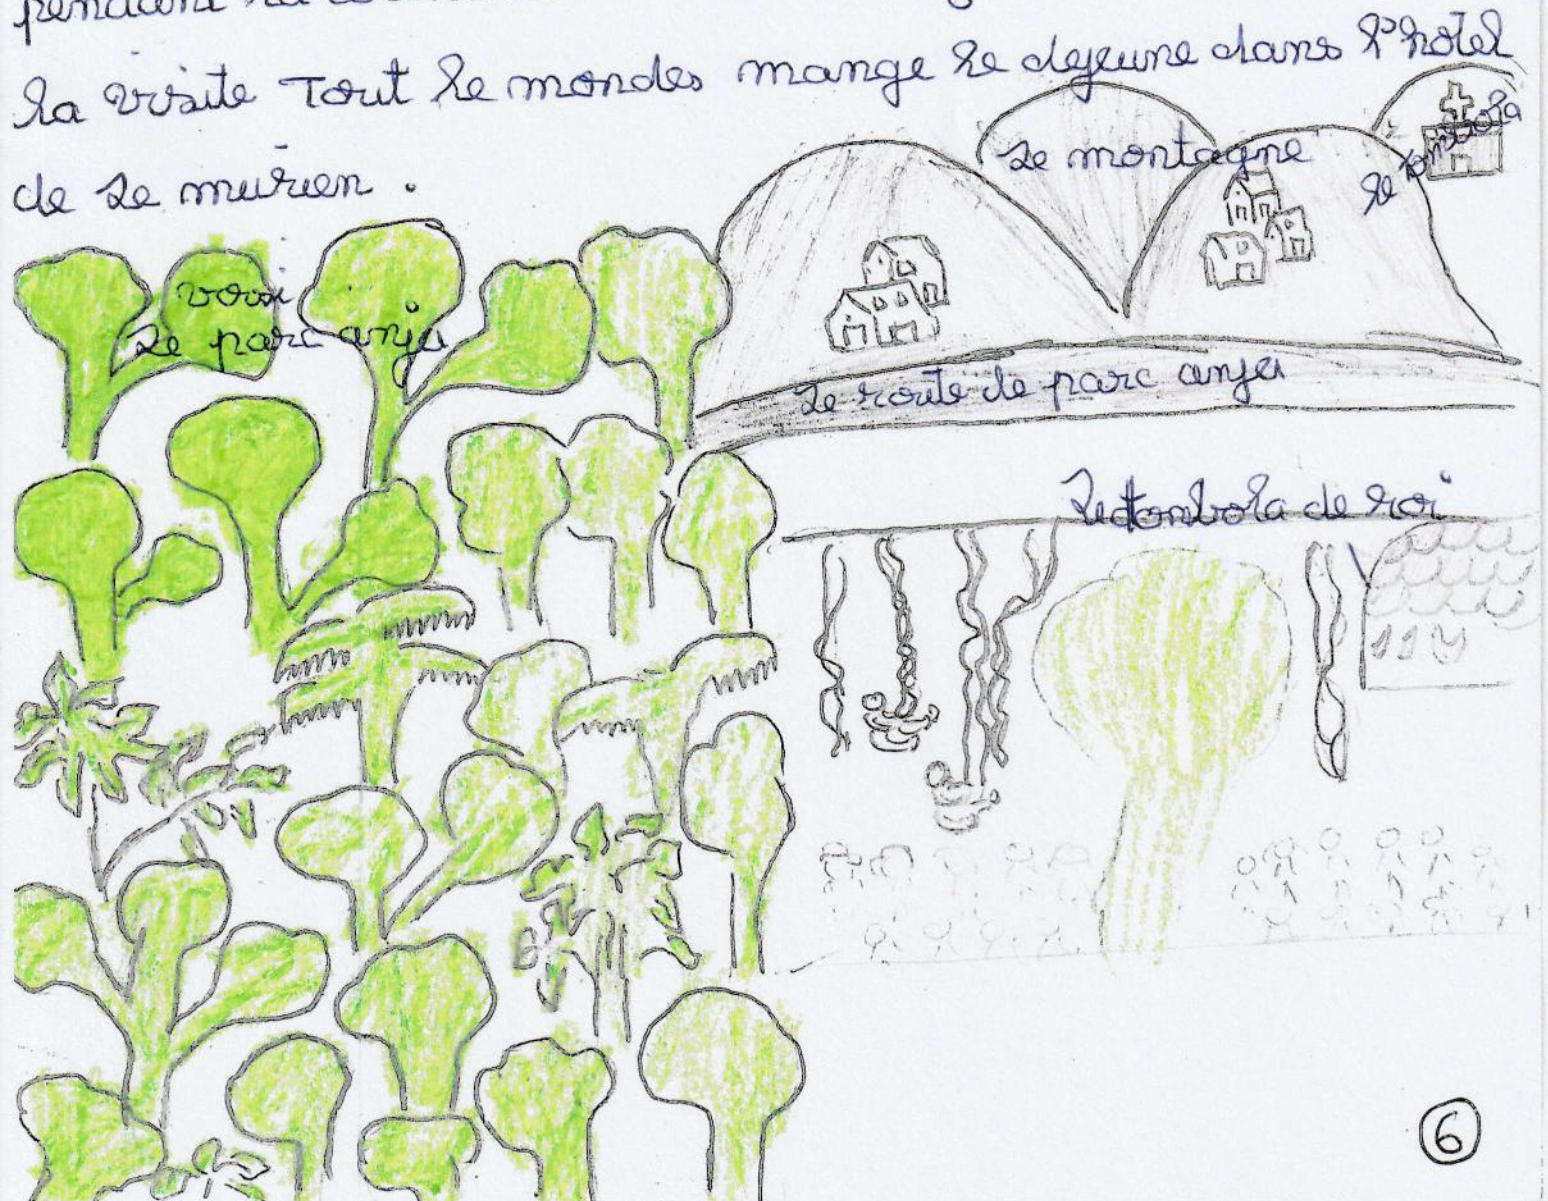 pendant la
la visite Tout le mondes mange le dejeune dans l'hôtel
de Le murien .
Le montagne
le tombola
voosi
Le parc anja
Le route de parc anja
Le tombola de roi
6